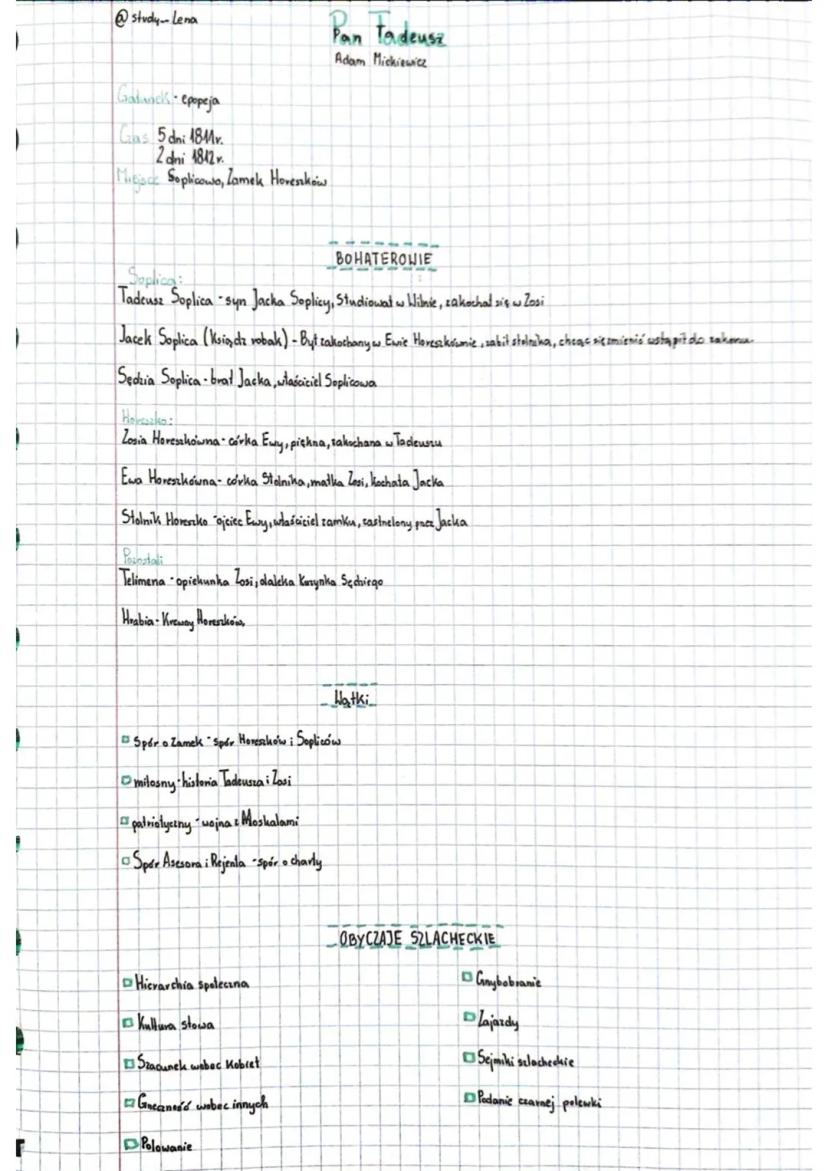 @ study_Lena
Pan Tadeusz
Adam Mickiewicz
Gatunek - epopeja
Czas 5 dni 1811r.
2 dni 1812r.
Miejsce Soplicowo, Zamek Horeszków
BOHATEROWIE
Soplica:
Tadeusz Soplica - syn Jacka Soplicy, Studiował w Wilnie, zakochał się w Zosi
Jacek Soplica (Ksiądz robak) - Był zakochany w Ewie Horeszkównie, zabił stolnika, chcąc się zmienić wstąpił do zakonu.
Sędzia Soplica - brat Jacka, właściciel Soplicowa
Horeszko:
Zosia Horeszkówna - córka Ewy, piękna, zakochana w Tadeuszu
Ewa Horeszkówna - córka Stolnika, matka Zosi, kochała Jacka
Stolnik Horeszko - ojciec Ewy, właściciel zamku, zastrzelony przez Jacka
Pozostali
Telimena - opiekunka Zosi, daleka Kuzynka Sędziego
Hrabia - Krewny Horeszków,
Wątki
Spór o Zamek - spór Horeszków i Sopliców
miłosny - historia Tadeusza i Zosi
patriotyczny - wojna z Moskalami
Spór Asesora i Rejenta - spór o charty
OBYCZAJE SZLACHECKIE
Hierarchia społeczna
Kultura słowa
Szacunek wobec Kobiet
Grzeczność wobec innych
Polowanie
Grzybobranie
Zajazdy
Sejmiki szlacheckie
Podanie czarnej polewki